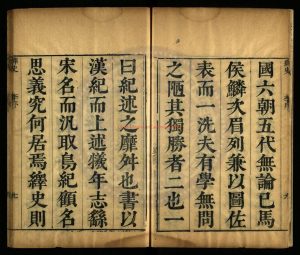 國六朝五代無論已馬
侯鱗次眉列兼以圖佐
表而一洗夫有學無問
之陋其獨勝者二也一
曰紀述之靡舛也書以
漢紀而上述犧年志繇
宋名而汎取鳥紀顧名
思義究何居焉繹史則